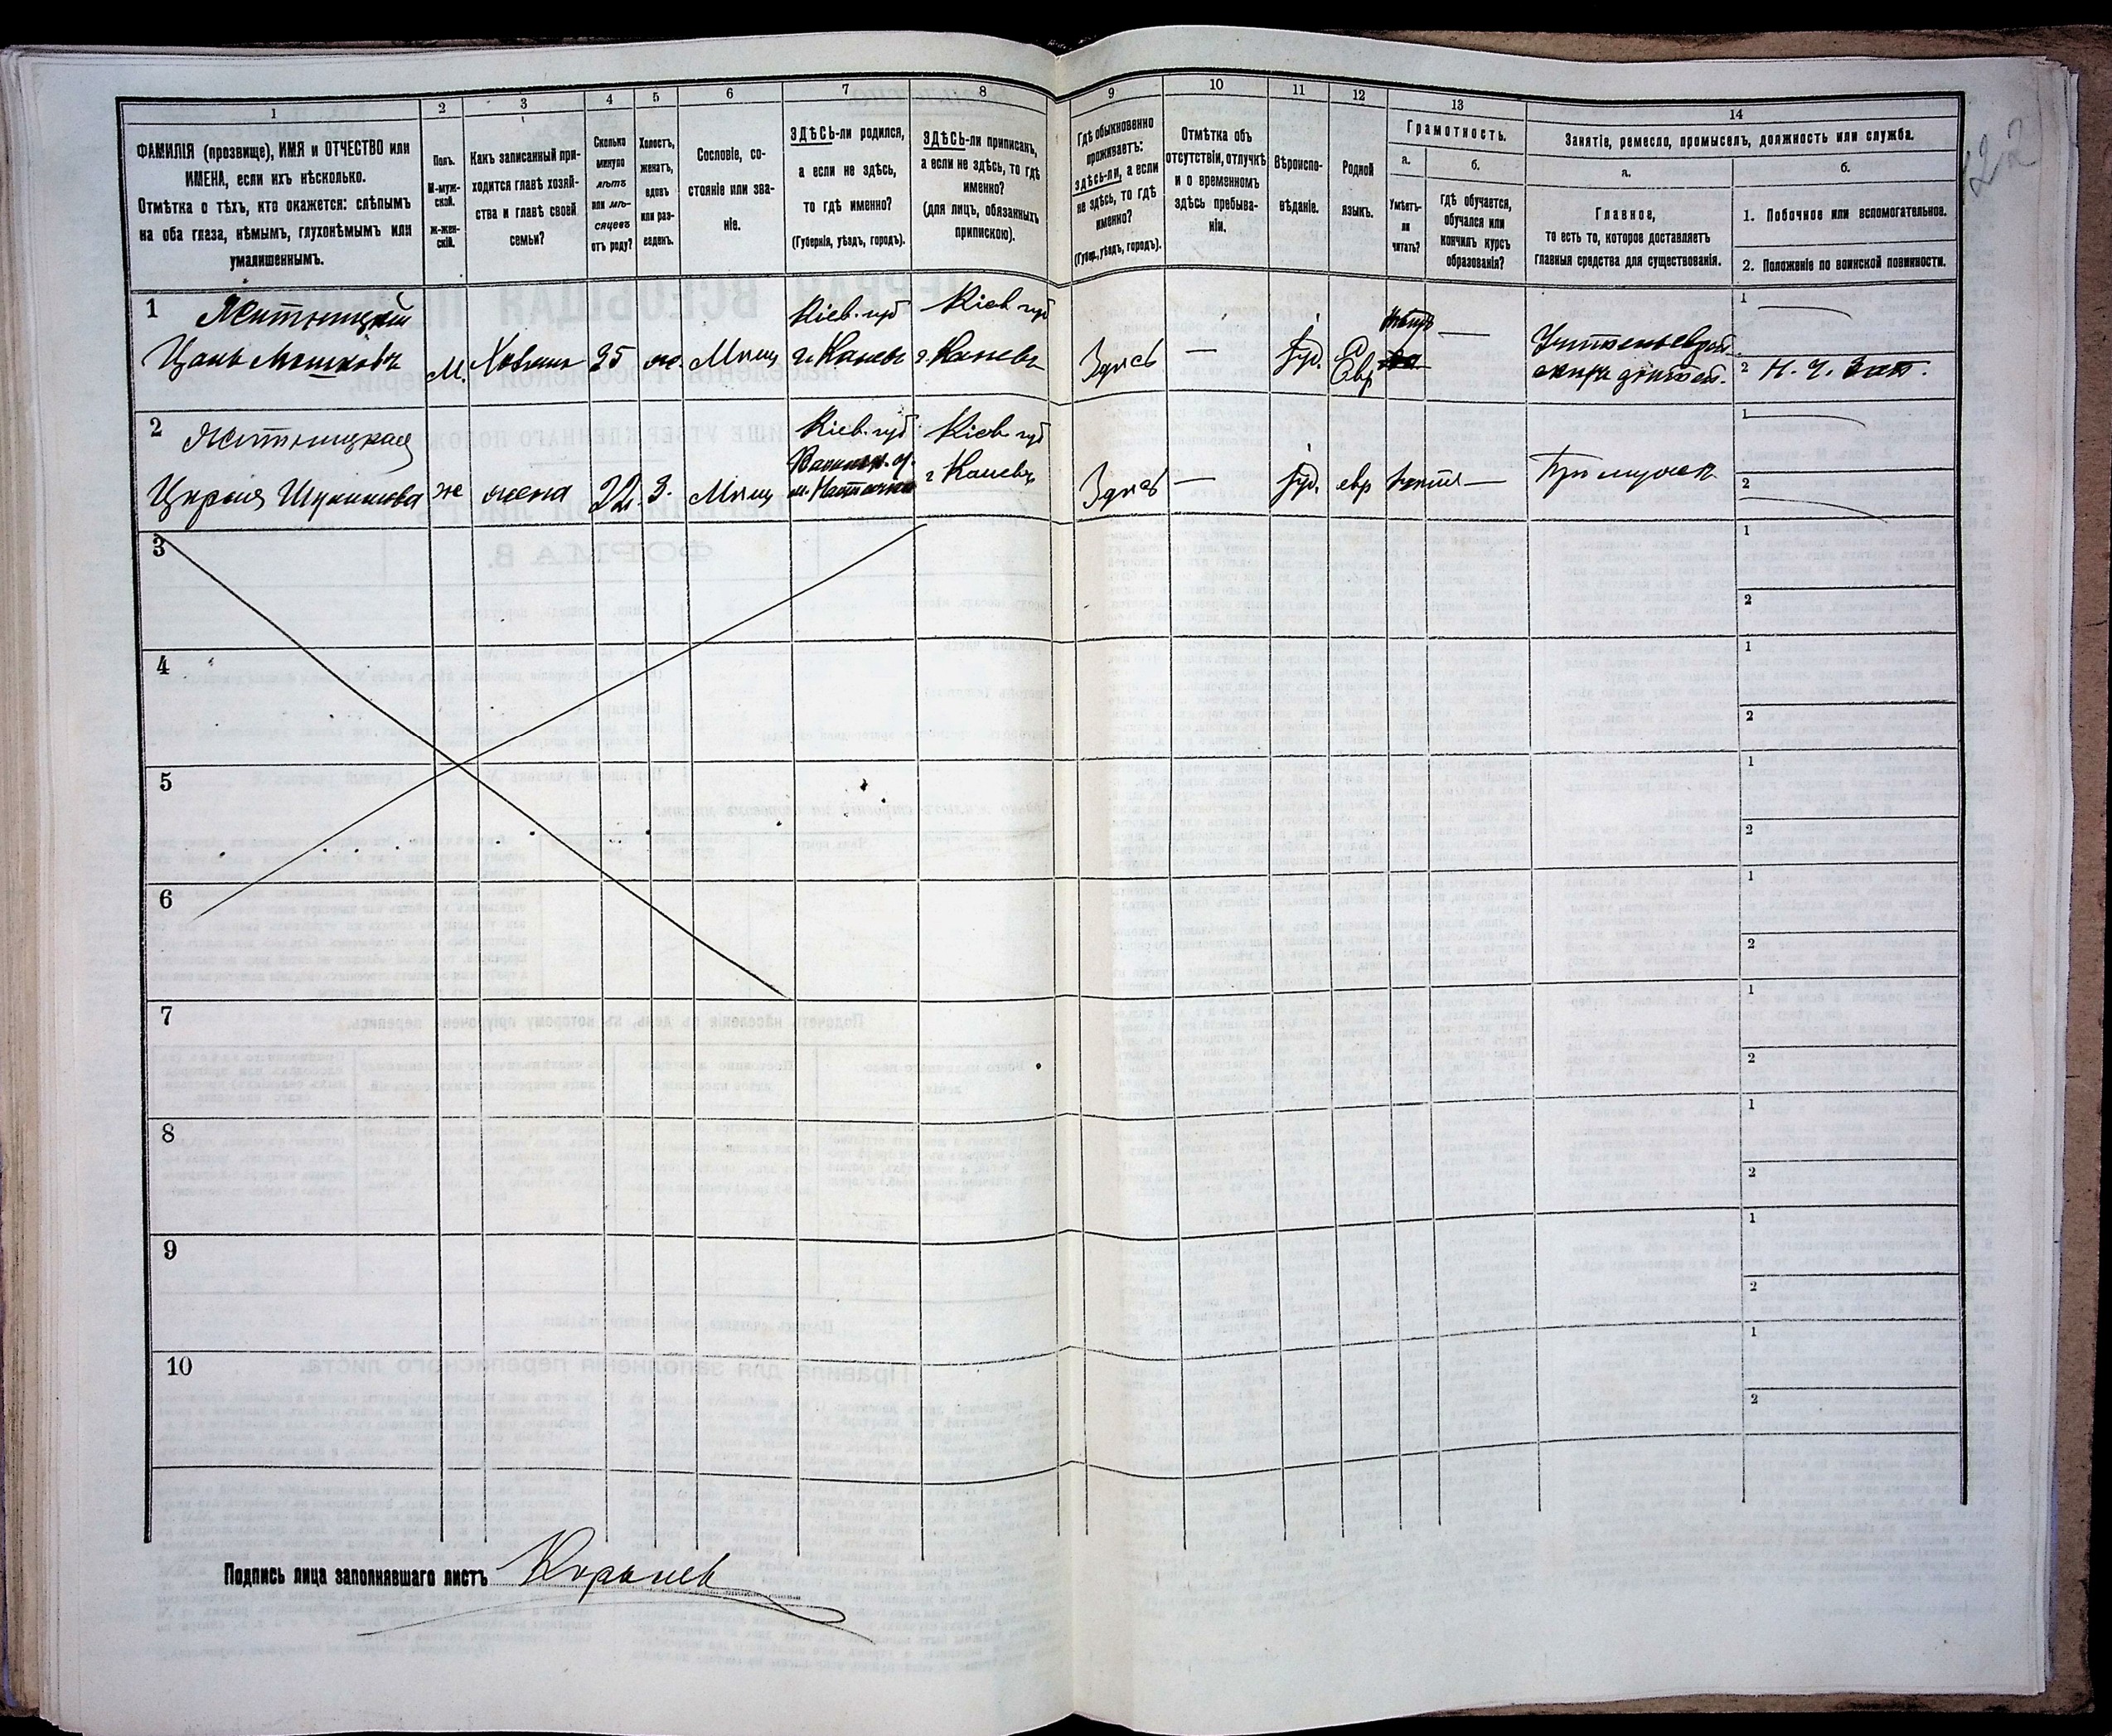 1
2
3
4
5
6
7
8
ФАМИЛІЯ (прозвище), ИМЯ и ОТЧЕСТВО или
ИМЕНА, если ихъ нѣсколько.
Отмѣтка о тѣхъ, кто окажется: слѣпымъ
на оба глаза, нѣмымъ, глухонѣмымъ или
умалишеннымъ.
Полъ.
М-муж-
ской.
Ж-жен-
скій.
Какъ записанный при-
ходится главѣ хозяй-
ства и главѣ своей
семьи?
Сколько
минуло
лѣтъ
или мѣ-
сяцевъ
отъ роду?
Холостъ,
женатъ,
вдовъ
или раз-
веденъ.
Сословіе, со-
стояніе или зва-
ніе.
ЗДѢСЬ-ли родился,
а если не здѣсь,
то гдѣ именно?
(Губернія, уѣздъ, городъ).
ЗДѢСЬ-ли приписанъ,
а если не здѣсь, то гдѣ
именно?
(для лицъ, обязанныхъ
припискою).
9
10
11
12
13
14
Гдѣ обыкновенно
проживаетъ:
здѣсь-ли, а если
не здѣсь, то гдѣ
именно?
(Губер., уѣздъ, городъ).
Отмѣтка объ
отсутствіи, отлучкѣ
и о временномъ
здѣсь пребыва-
ніи.
Вѣроиспо-
вѣданіе.
Родной
языкъ.
Грамотность.
а.
б.
Умѣетъ-
ли
читать?
гдѣ обучается,
обучался или
кончилъ курсъ
образованія?
Занятіе, ремесло, промыселъ, должность или служба.
а.
б.
Главное,
то есть то, которое доставляетъ
главныя средства для существованія.
1. Побочное или вспомогательное.
2. Положеніе по воинской повинности.
1 Житницкій
Мошковъ
М. Хозяинъ 35 ж. Мѣщ
Кіев. губ
г. Каневъ
Кіев губ
г. Каневъ
Здѣсь — Іуд. Евр
—
1
2 Н. Ч. Зап.
2 Житницкая
ж жена 22 З. Мѣщ
Кіев. губ
Кіев губ
г Каневъ
Здѣсь — Іуд. евр —
При мужѣ
1
2
3
1
2
4
1
2
5
1
2
6
1
2
7
1
2
8
1
2
9
1
2
10
1
2
Подпись лица заполнявшаго листъ
122